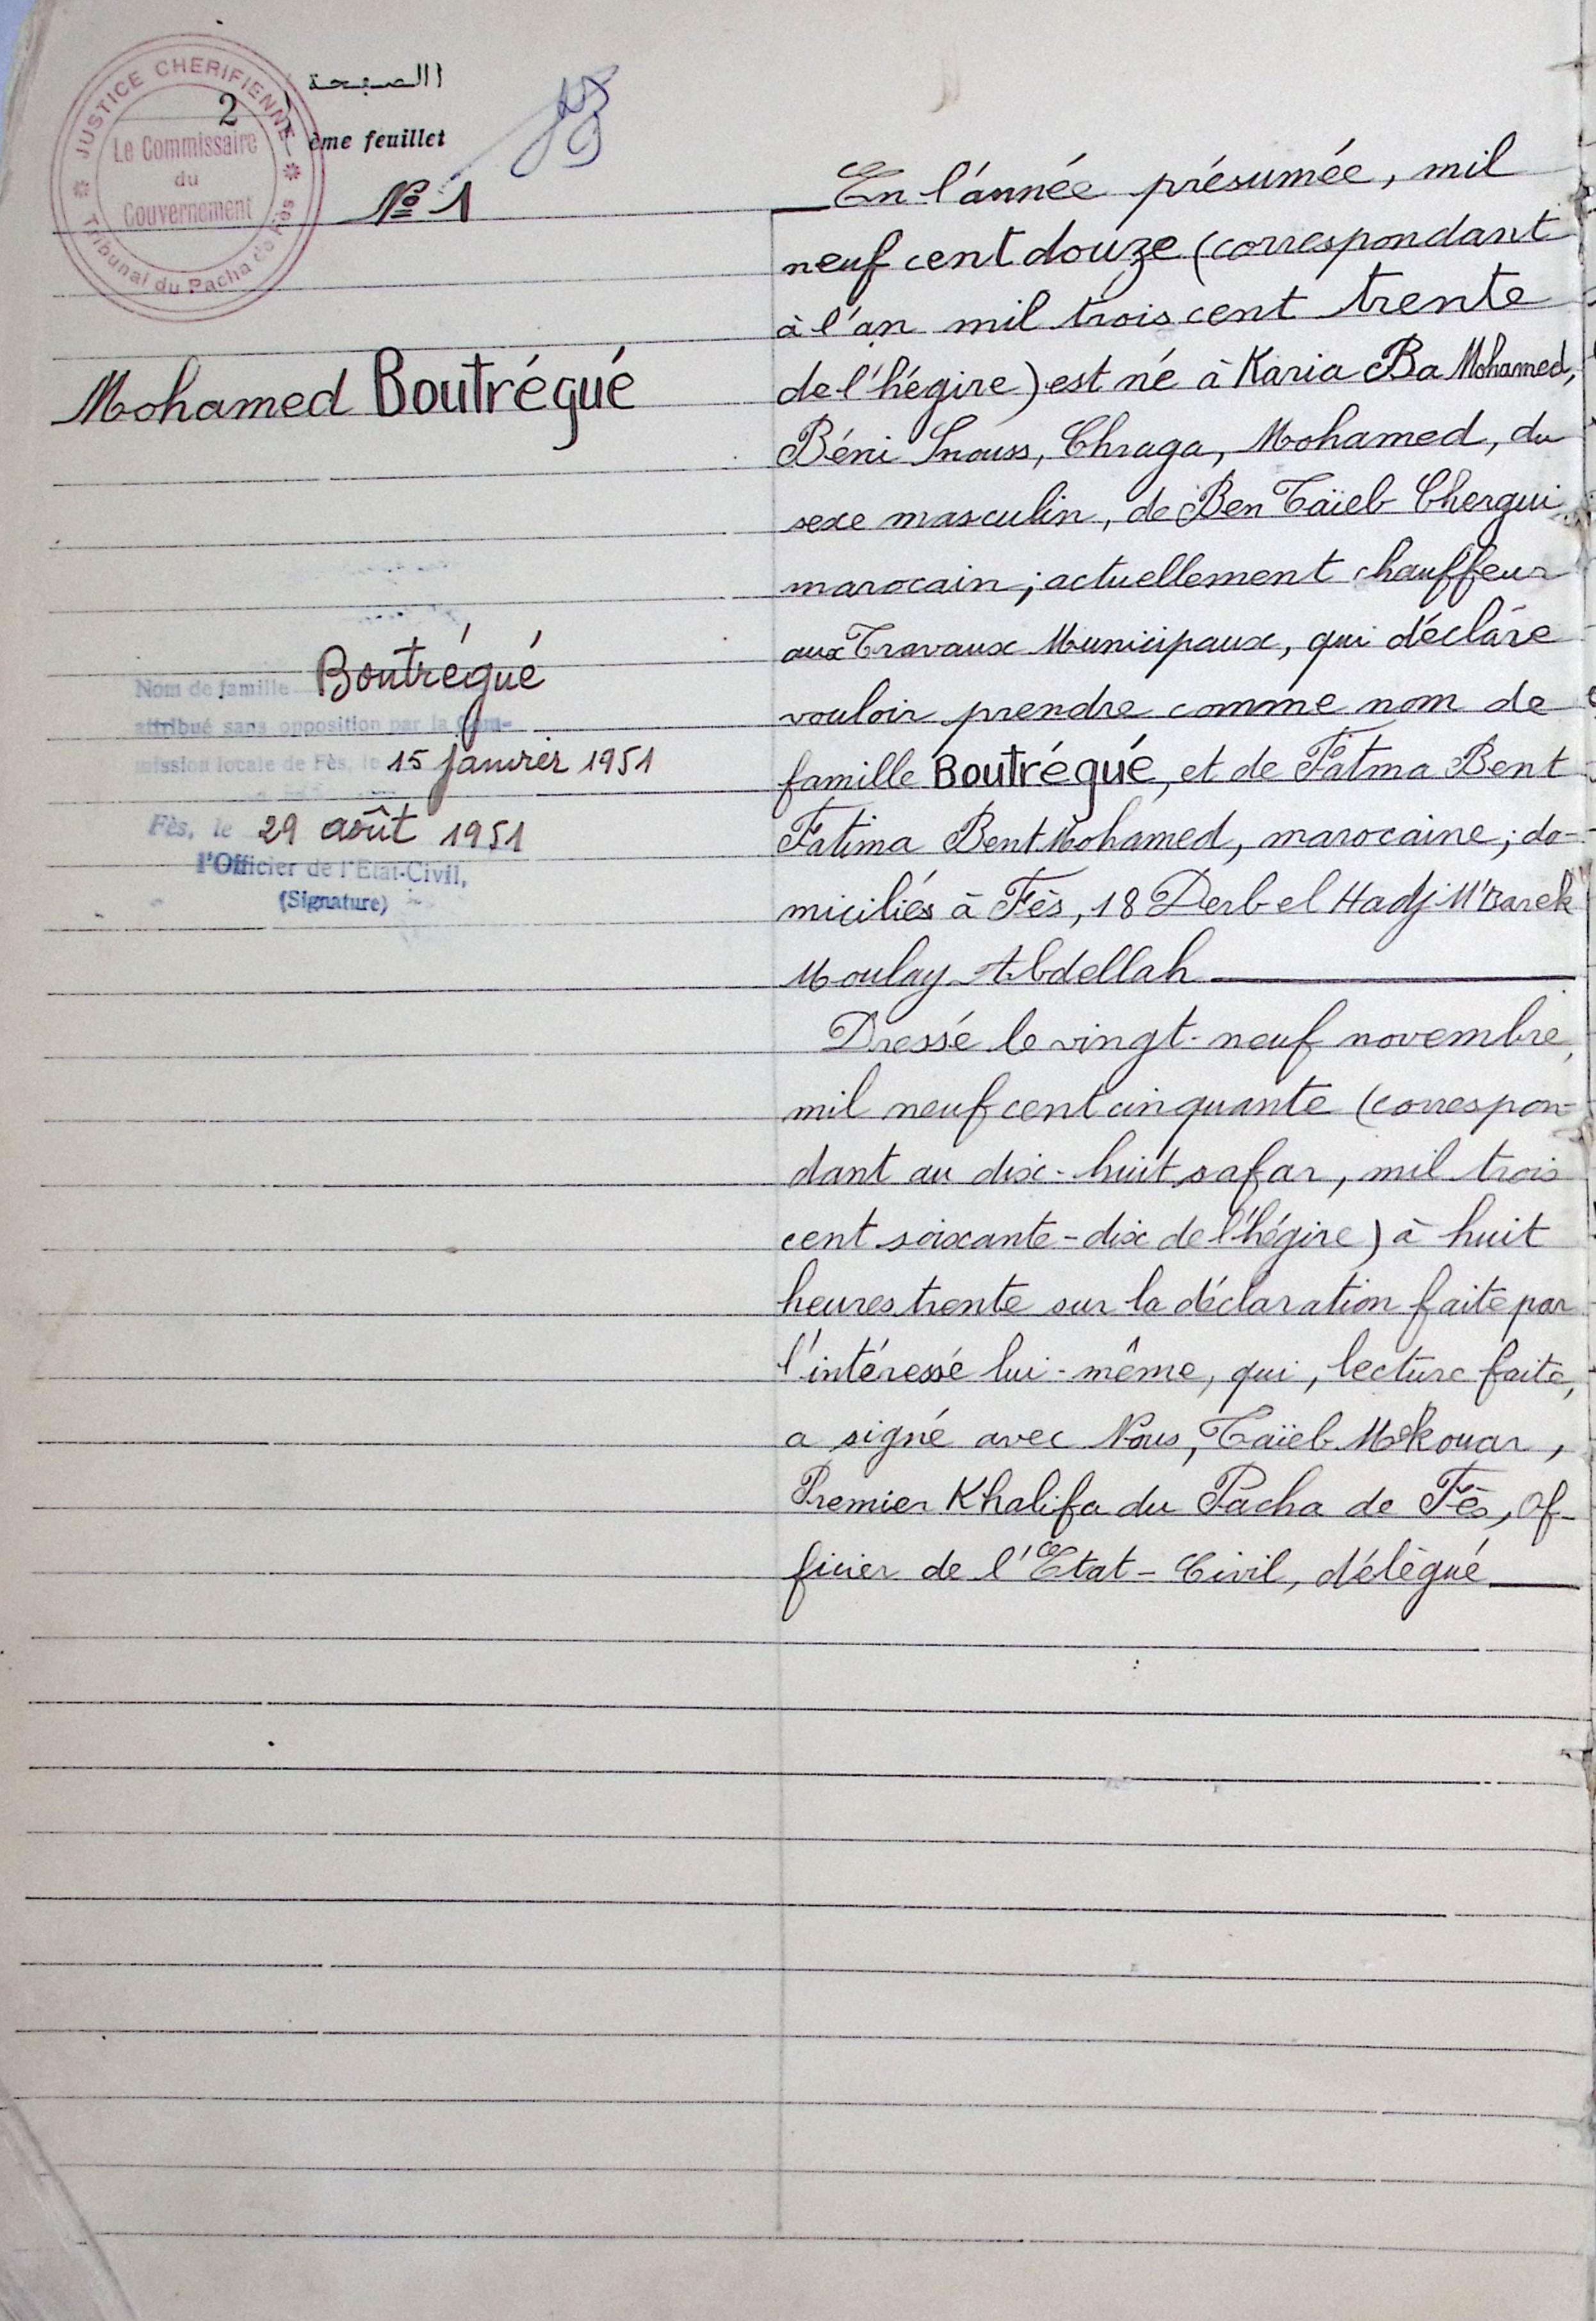 JUSTICE CHERIFIENNE
Le Commissaire
du
Gouvernement
Tribunal du Pacha de Fès
الصفحة
2 ème feuillet
Nº 1
Mohamed Boutrégué
Nom de famille Boutrégué
attribué sans opposition par la Com-
mission locale de Fès, le 15 janvier 1951
Fès, le 29 août 1951
l'Officier de l'Etat-Civil,
(Signature)
En l'année présumée, mil
neuf cent douze (correspondant
à l'an mil trois cent trente
de l'hégire) est né à Karia Ba Mohamed,
Béni Snouss, Chraga, Mohamed, du
sexe masculin, de Ben Taïeb Chergui
marocain; actuellement chauffeur
aux Travaux Municipaux, qui déclare
vouloir prendre comme nom de
famille Boutrégué, et de Fatma Bent
Fatima Bent Mohamed, marocaine; do-
miciliés à Fès, 18 Derb el Hadj M'Barek
Moulay Abdellah
Dressé le vingt-neuf novembre,
mil neuf cent cinquante (correspon-
dant au dix-huit safar, mil trois
cent soixante-dix de l'hégire) à huit
heures trente sur la déclaration faite par
l'intéressé lui-même, qui, lecture faite,
a signé avec Nous, Taïeb Mekouar,
Premier Khalifa du Pacha de Fès, Of-
ficier de l'Etat-Civil, délégué